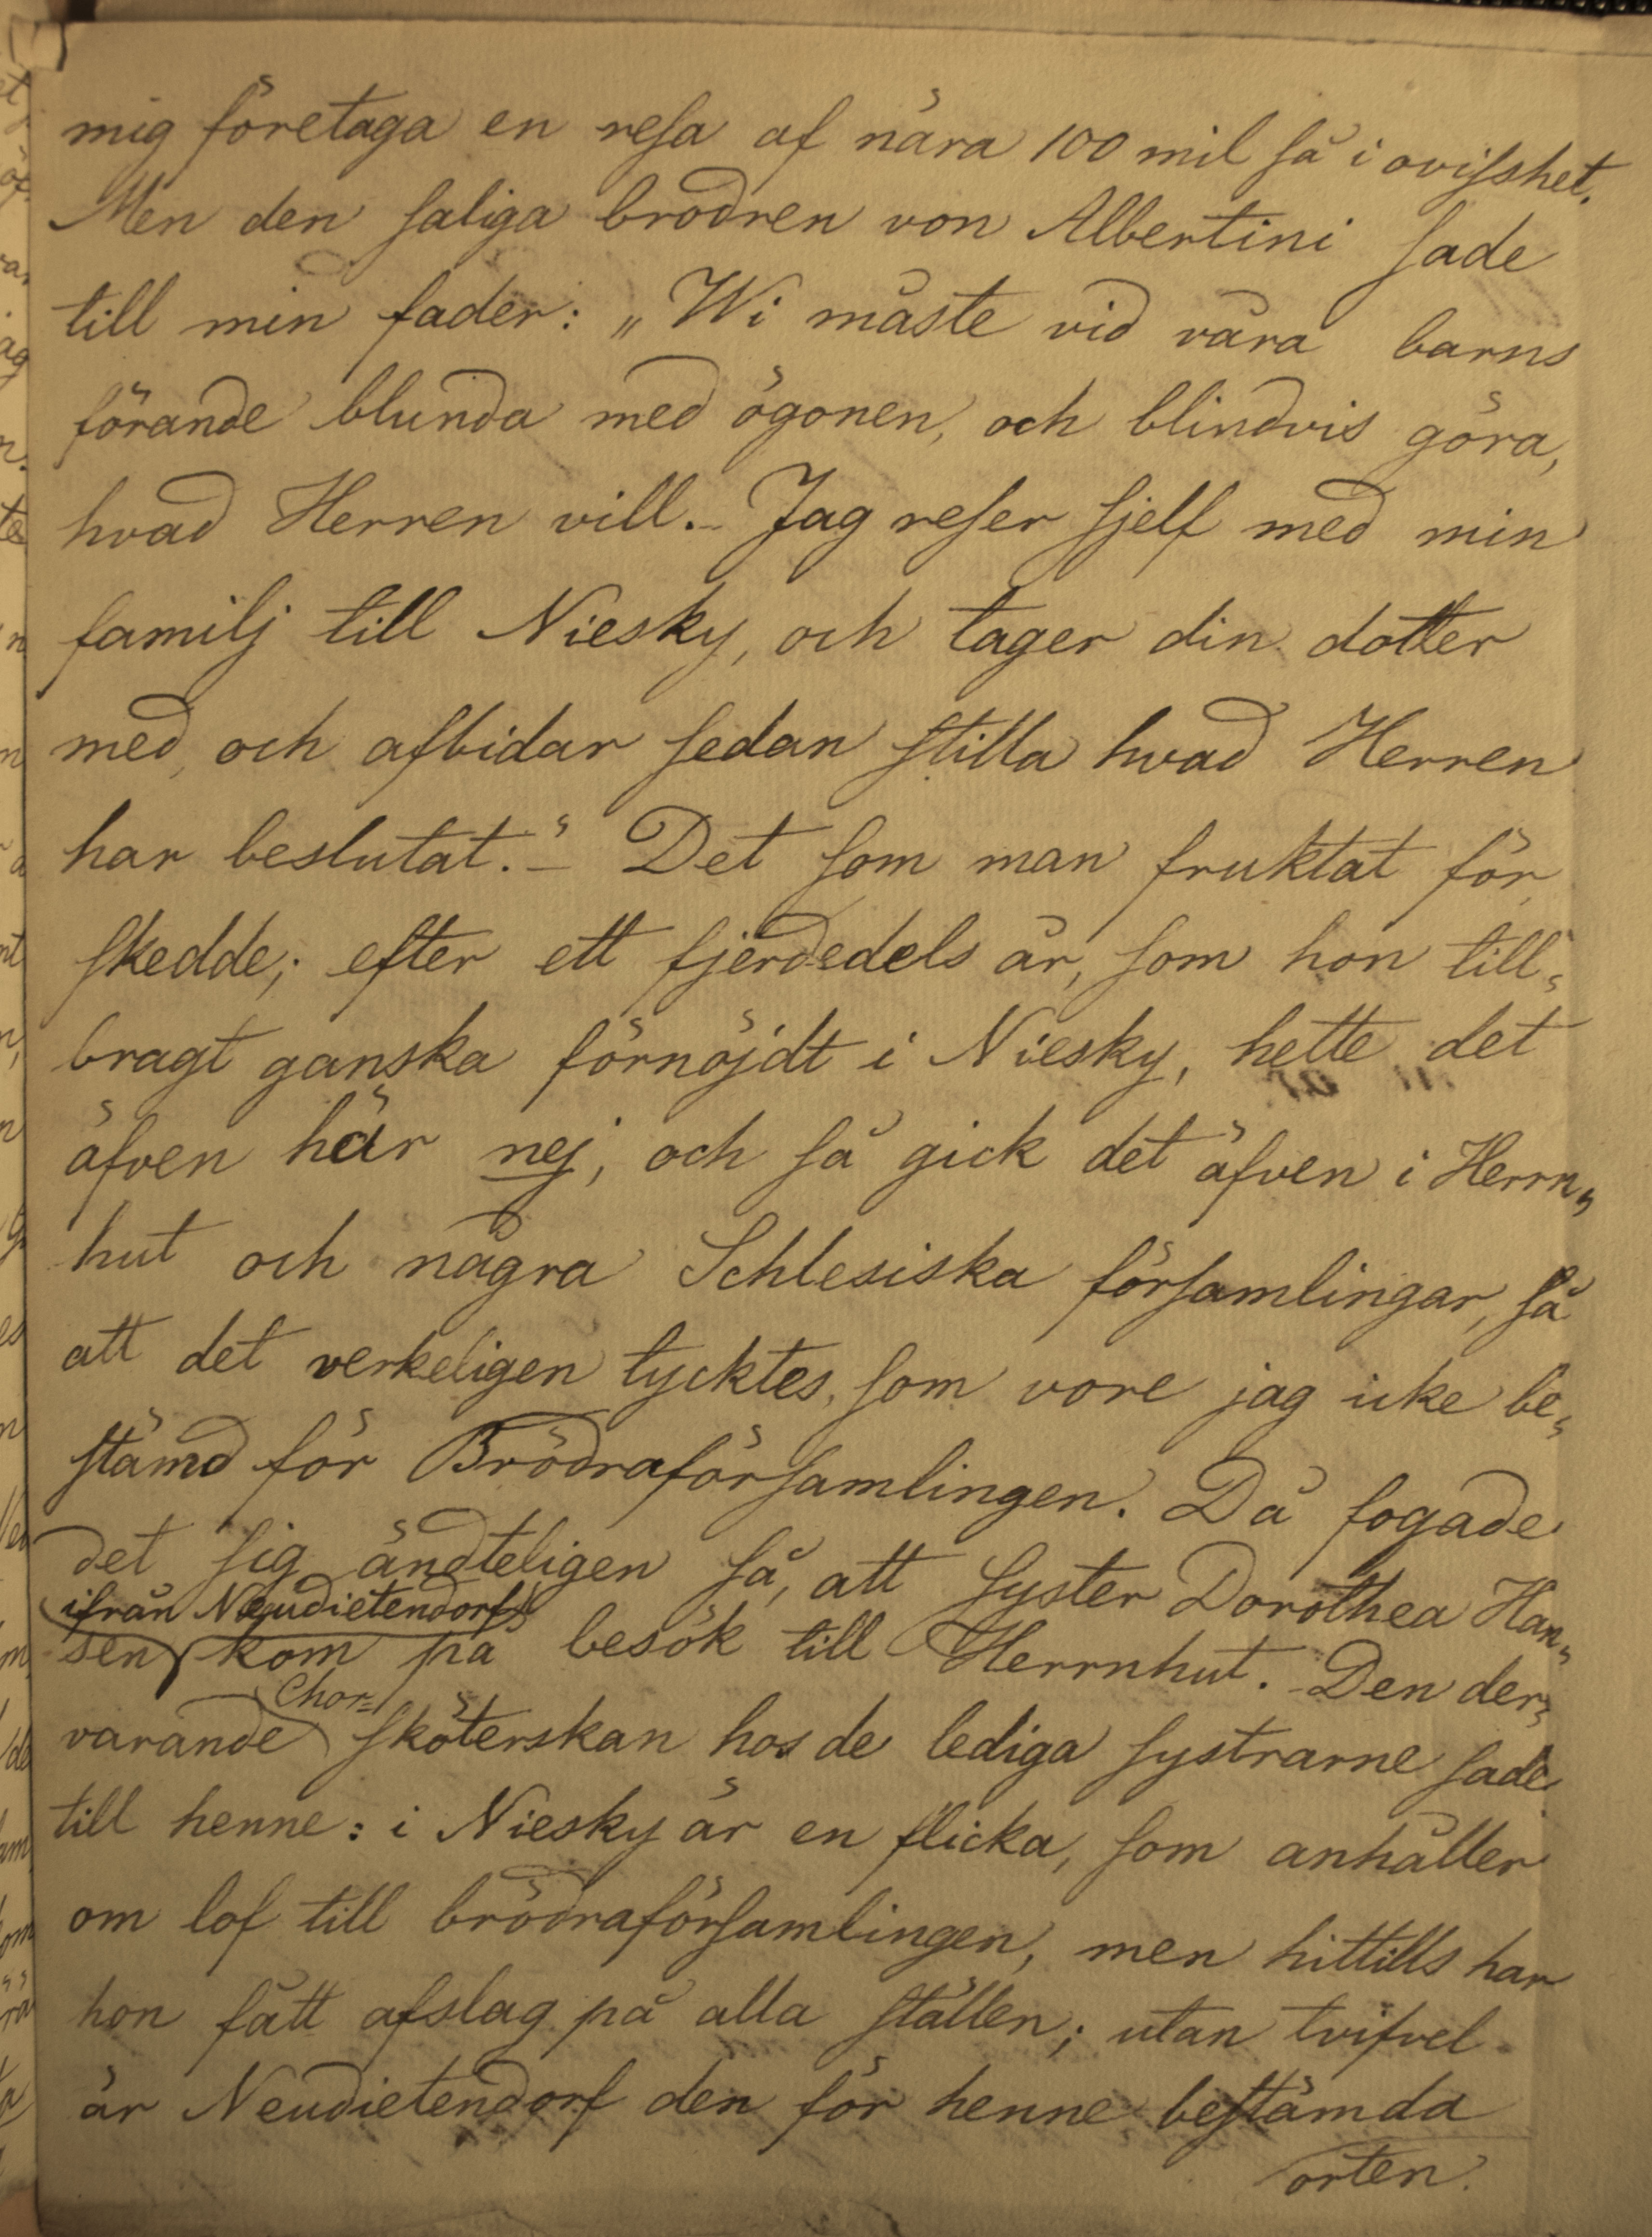 mig företaga en resa af nära 100 mil så i ovisshet.
Men den saliga brodren von Albertini sade
till min fader: „Wi måste vid våra barns
förande blunda med ögonen, och blindvis göra,
hvad Herren vill. – Jag reser sjelf med min
familj till Niesky, och tager din dotter
med, och afbidar sedan stilla hvad Herren
har beslutat.“ – Det som man fruktat för,
skedde; efter ett fjerdedels år, som hon till„
bragt ganska förnöjdt i Niesky, hette det
äfven här nej, och så gick det äfven i Herrn„
hut och några Schlesiska församlingar, så
att det verkeligen tycktes, som vore jag icke be„
stämd för Brödraförsamlingen. Då fogade
det sig ändteligen så, att syster Dorothea Han„
ifrån Neudietendorf
sen kom på besök till Herrnhut. Den der„
Chor=
varande sköterskan hos de lediga systrarne sade
till henne: i Niesky är en flicka, som anhåller
om lof till brödraförsamlingen, men hittills har
hon fått afslag på alla ställen; utan tvifvel
är Neudietendorf den för henne bestämda
orten.